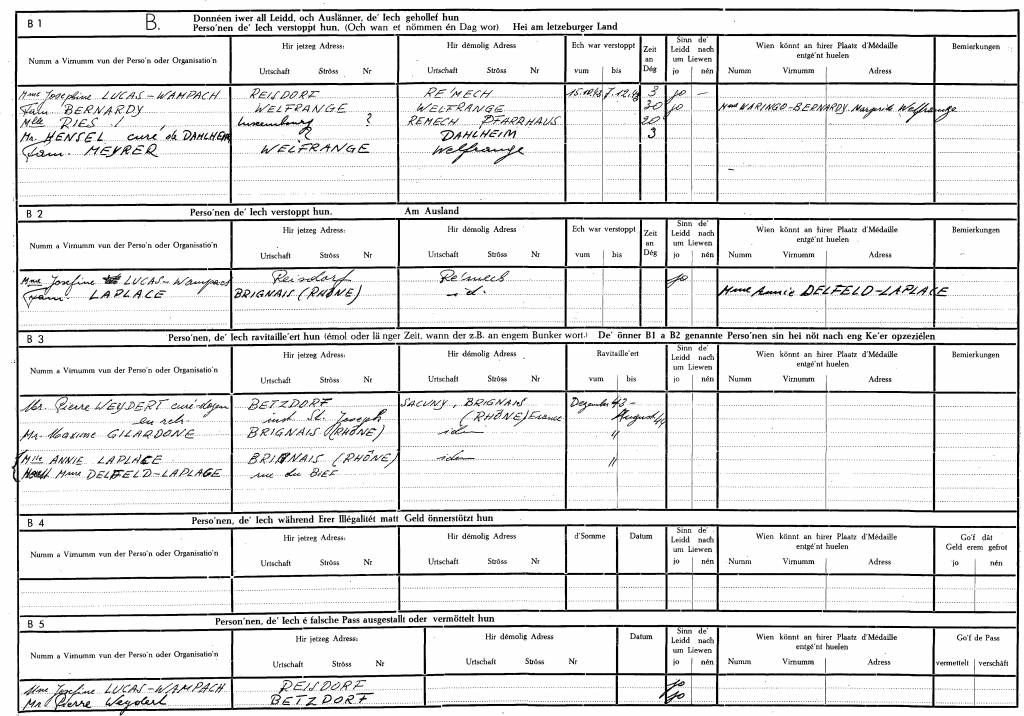 B 1 B. Donnéen iwer all Leidd, och Auslänner, de' Iech gehollef hun
Perso'nen de' Iech verstoppt hun. (Och wan et nömmen én Dag wor) Hei am letzeburger Land
Numm a Virnumm vun der Perso'n oder Organisatio'n Hir jetzeg Adress: Hir démolig Adress Ech war verstoppt Zeit an Dég Sinn de' Leidd nach um Liewen Wien könnt an hirer Plaatz d'Médaille entgé'nt huelen Bemierkungen
Urtschaft Ströss Nr Urtschaft Ströss Nr vum bis jo nén Numm Virnumm Adress
Mme Josephine LUCAS-WAMPACH REISDORF RE'MECH 3 jo –
Fam BERNARDY WELFRANGE WELFRANGE 30 jo Mme WARINGO-BERNARDY. Welfrange
Mlle RIES Luxembourg ? REMECH PFARRHAUS 20
Mr. HENSEL curé de DAHLHEIM ? DAHLHEIM 3
Fam. MEYRER WELFRANGE Welfrange
B 2 Perso'nen de' Iech verstoppt hun. Am Ausland
Numm a Virnumm vun der Perso'n oder Organisatio'n Hir jetzeg Adress: Hir démolig Adress Ech war verstoppt Zeit an Dég Sinn de' Leidd nach um Liewen Wien könnt an hirer Plaatz d'Médaille entgé'nt huelen Bemierkungen
Urtschaft Ströss Nr Urtschaft Ströss Nr vum bis jo nén Numm Virnumm Adress
Mme Josefine LUCAS-Wampach Reisdorf Re'mech jo
Fam. LAPLACE BRIGNAIS (RHÔNE) id. Mme Annie DELFELD-LAPLACE
B 3 Perso'nen, de' Iech ravitaille'ert hun (émol oder länger Zeit, wann der z.B. an engem Bunker wort.) De' önner B1 a B2 genannte Perso'nen sin hei nöt nach eng Ke'er opzeziélen
Numm a Virnumm vun der Perso'n oder Organisatio'n Hir jetzeg Adress: Hir démolig Adress Ravitaille'ert Sinn de' Leidd nach um Liewen Wien könnt an hirer Plaatz d'Médaille entgé'nt huelen Bemierkungen
Urtschaft Ströss Nr Urtschaft Ströss Nr vum bis jo nén Numm Virnumm Adress
Mr. Pierre WEYDERT curé-doyen BETZDORF SACUNY, BRIGNAIS Dezember 43 –
en retr. inst St. Joseph (RHÔNE) France August 44
Mr. Maxime GILARDONE BRIGNAIS (RHÔNE) idem "
Mlle ANNIE LAPLACE BRIGNAIS (RHÔNE) idem "
Mme DELFELD-LAPLACE rue du BIEF
B 4 Perso'nen, de' Iech während Erer Illégalitét matt Geld önnerstötzt hun
Numm a Virnumm vun der Perso'n oder Organisatio'n Hir jetzeg Adress: Hir démolig Adress d'Somme Datum Sinn de' Leidd nach um Liewen Wien könnt an hirer Plaatz d'Médaille entgé'nt huelen Go'f dât Geld erem gefrot
Urtschaft Ströss Nr Urtschaft Ströss Nr jo nén Numm Virnumm Adress jo nén
B 5 Person'nen, de' Iech é falsche Pass ausgestallt oder vermöttelt hun
Numm a Virnumm vun der Perso'n oder Organisatio'n Hir jetzeg Adress: Hir démolig Adress Datum Sinn de' Leidd nach um Liewen Wien könnt an hirer Plaatz d'Médaille entgé'nt huelen Go'f de Pass
Urtschaft Ströss Nr Urtschaft Ströss Nr jo nén Numm Virnumm Adress vermettelt verschäft
Mme Josefine LUCAS-WAMPACH REISDORF jo
Mr Pierre Weydert BETZDORF jo